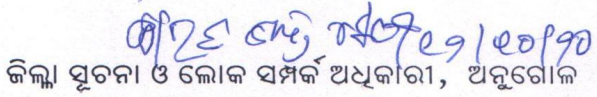 ୧୨/୧୦/୨୦
ଜିଲ୍ଲା ସୂଚନା ଓ ଲୋକ ସମ୍ପର୍କ ଅଧିକାରୀ, ଅନୁଗୋଳ